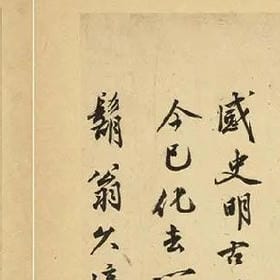 盛史明古
今已化去
鬍翁久